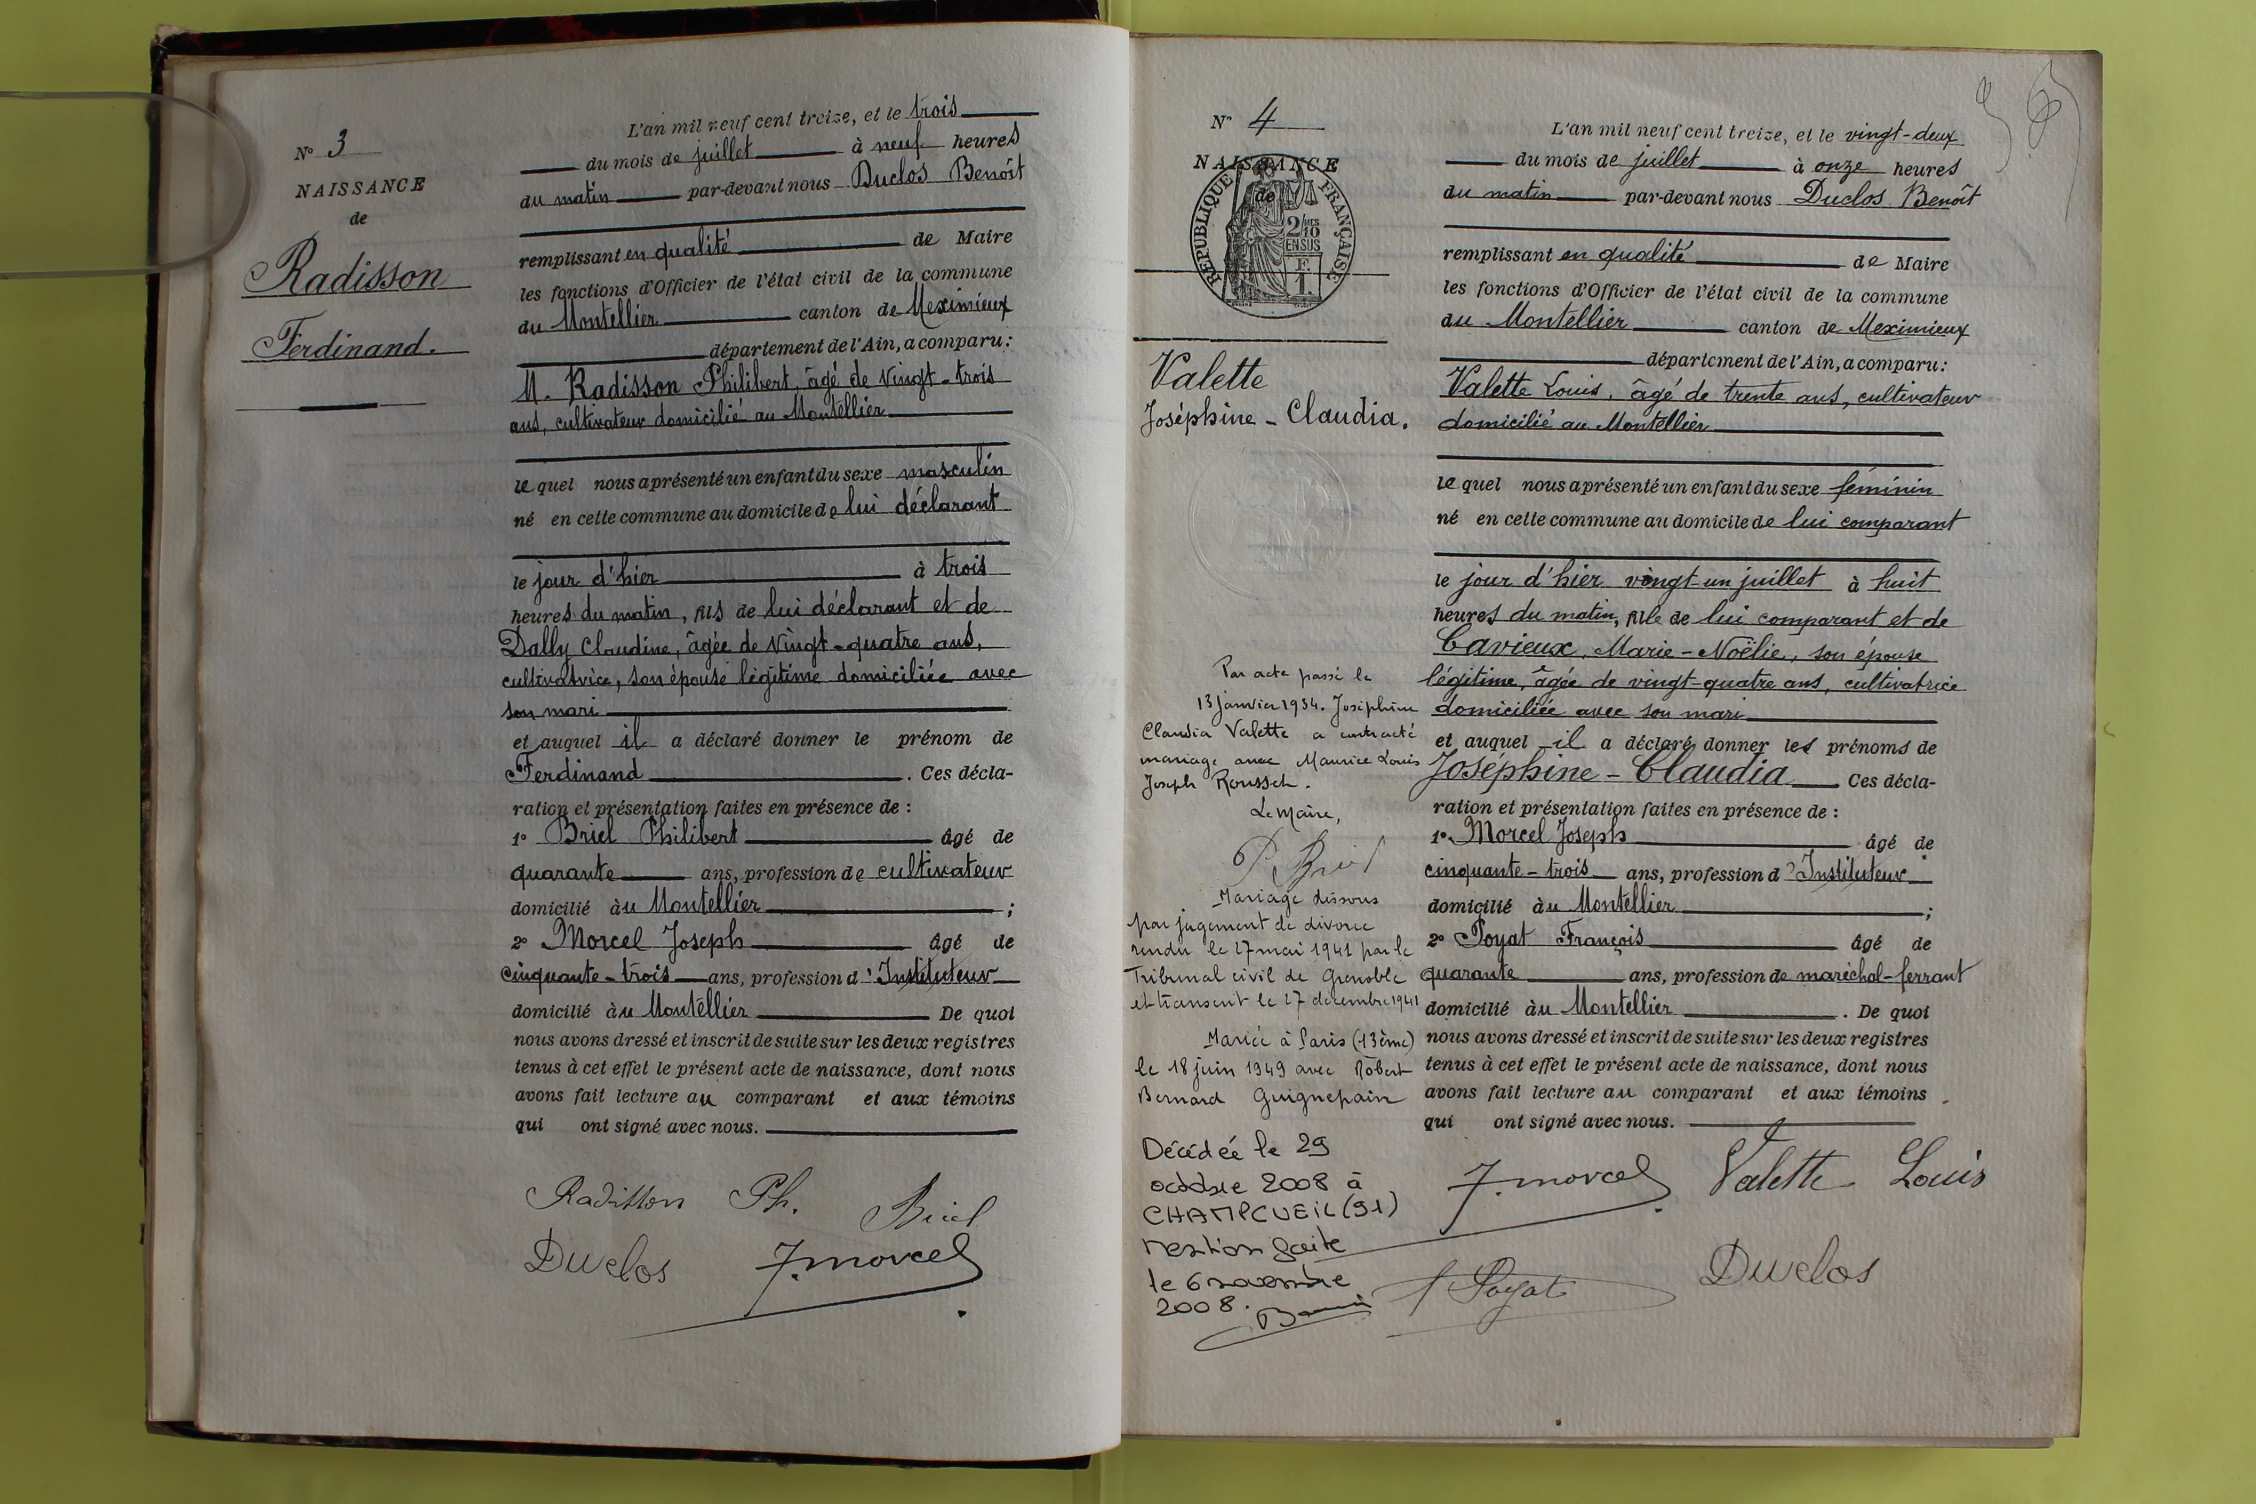 N° 3
NAISSANCE
de
Radisson
Ferdinand.
L'an mil neuf cent treize, et le trois
du mois de juillet à neuf heures
du matin par-devant nous Duclos Benoît
remplissant en qualité de Maire
les fonctions d'Officier de l'état civil de la commune
du Montellier canton de Meximieux
département de l'Ain, a comparu :
M. Radisson Philibert, âgé de vingt-trois
ans, cultivateur domicilié au Montellier
lequel nous a présenté un enfant du sexe masculin
né en cette commune au domicile de lui déclarant
le jour d'hier à trois
heures du matin, fils de lui déclarant et de
Dally Claudine, âgée de vingt-quatre ans,
cultivatrice, son épouse légitime domiciliée avec
son mari
et auquel il a déclaré donner le prénom de
Ferdinand. Ces décla-
ration et présentation faites en présence de :
1° Briel Philibert âgé de
quarante ans, profession de cultivateur
domicilié àu Montellier ;
2° Morcel Joseph âgé de
cinquante-trois ans, profession d'Instituteur
domicilié àu Montellier De quoi
nous avons dressé et inscrit de suite sur les deux registres
tenus à cet effet le présent acte de naissance, dont nous
avons fait lecture au comparant et aux témoins
qui ont signé avec nous.
Radisson Ph. Briel
Duclos J. Morcel
N° 4
NAISSANCE
de
RÉPUBLIQUE FRANÇAISE
2/10
EN SUS
Valette
Joséphine - Claudia.
Par acte passé le
13 janvier 1934. Joséphine
Claudia Valette a contracté
mariage avec Maurice Louis
Joseph
Le Maire,
P. Briel
Mariage dissous
par jugement de divorce
rendu le 27 mai 1941 par le
Tribunal civil de Grenoble
et transcrit le 27 décembre 1941
Mariée à Paris (13ème)
le 18 juin 1949 avec Robert
Bernard Guignepain
Décédée le 29
octobre 2008 à
CHAMPCUEIL (91)
mention faite
le 6 novembre
2008.
L'an mil neuf cent treize, et le vingt-deux
du mois de juillet à onze heures
du matin par-devant nous Duclos Benoît
remplissant en qualité de Maire
les fonctions d'Officier de l'état civil de la commune
du Montellier canton de Meximieux
département de l'Ain, a comparu :
Valette Louis, âgé de trente ans, cultivateur
domicilié au Montellier
lequel nous a présenté un enfant du sexe féminin
né en cette commune au domicile de lui comparant
le jour d'hier vingt-un juillet à huit
heures du matin, fille de lui comparant et de
Cavieux, Marie-Noëlie, son épouse
légitime, âgée de vingt-quatre ans, cultivatrice
domiciliée avec son mari
et auquel il a déclaré donner les prénoms de
Joséphine - Claudia Ces décla-
ration et présentation faites en présence de :
1° Morcel Joseph âgé de
cinquante-trois ans, profession d'Instituteur
domicilié àu Montellier ;
2° Poyat François âgé de
quarante ans, profession de maréchal-ferrant
domicilié àu Montellier. De quoi
nous avons dressé et inscrit de suite sur les deux registres
tenus à cet effet le présent acte de naissance, dont nous
avons fait lecture au comparant et aux témoins
qui ont signé avec nous.
J. Morcel Valette Louis
Poyat Duclos